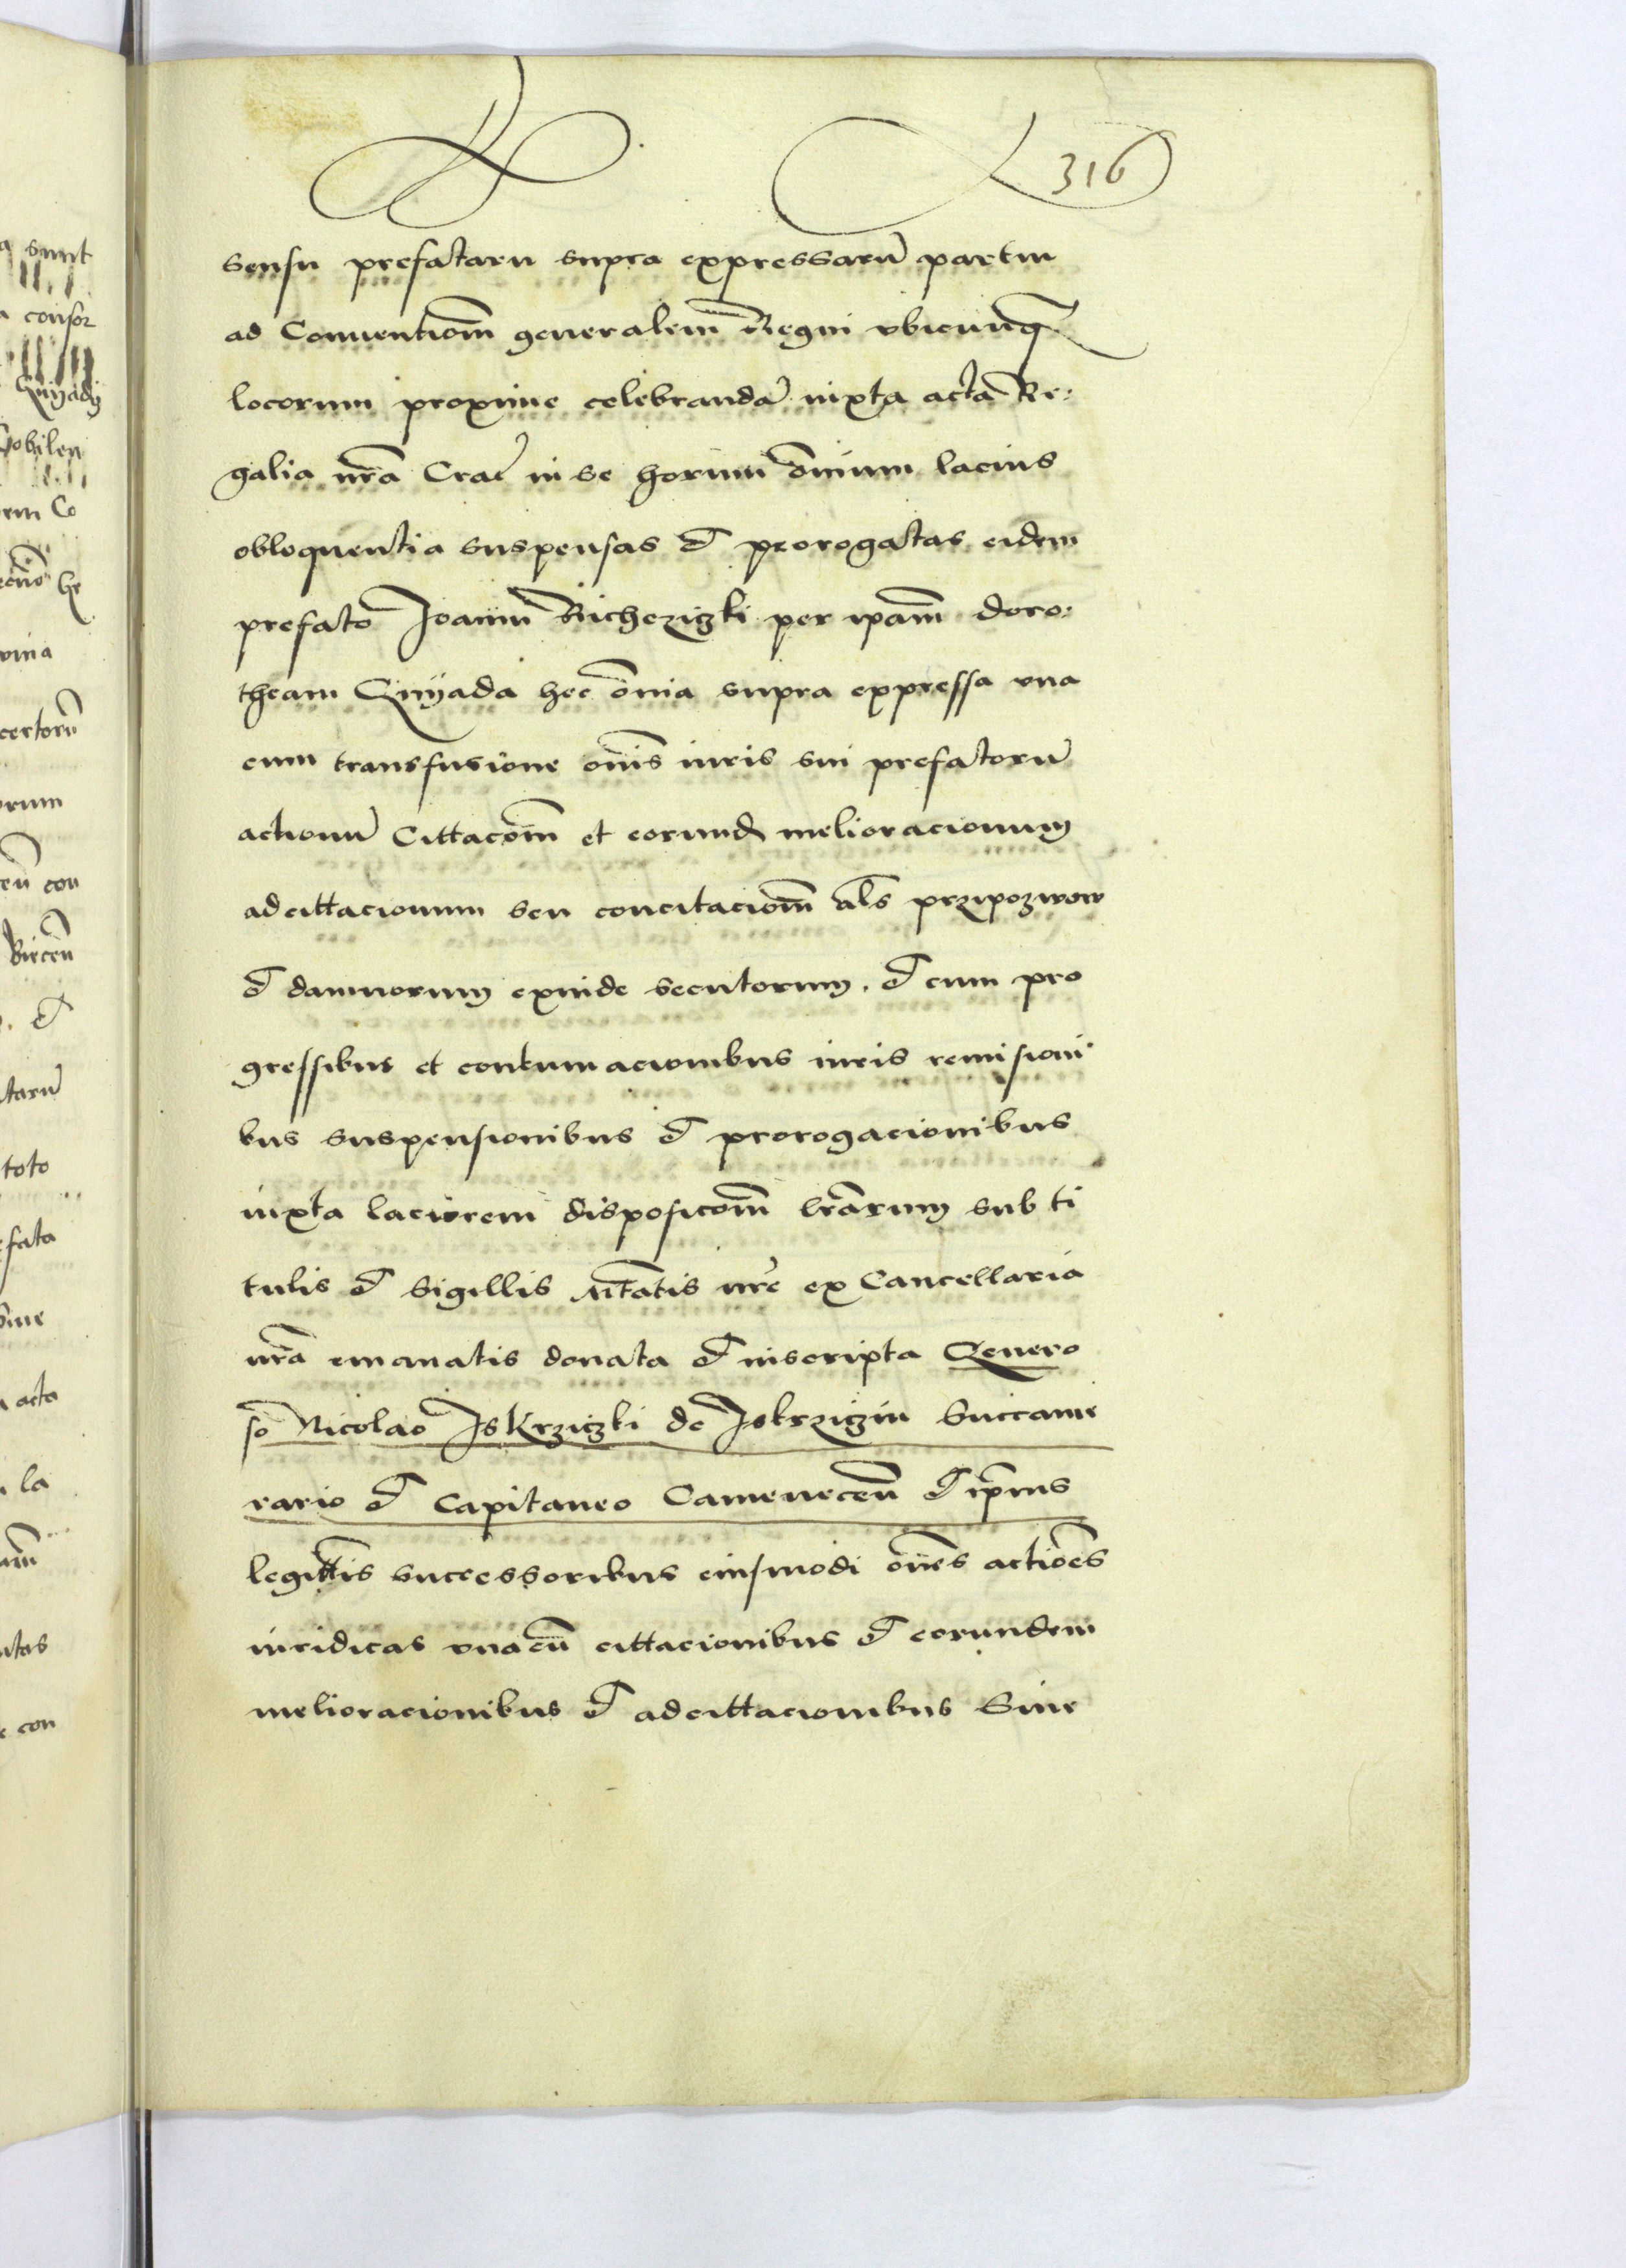 316
sensu prefataru supra expressarũ partiu
ad Conuentiom̃ generalem Regni vbicunq
locorum proxime celebrandã iuxta acta Re:
galia nr̃a Crac̃ in se horum om̃ium lacius
obloquentia suspensas et prorogatas eidem
prefato Joanni Bicherziczki per ip̃am doro:
theam Gnyada hec om̃ia supra expressa vna
cum transfusione om̃is iuris sui prefatorũ
actionũ Cittacom̃ et eorund melioracionum
adcittacionum seu concitaciom̃ als przipozwow
et damnorum exinde secutorum. et cum pro
gressibus et contumacionibus iuris remisioni
bus suspensionibus et prorogacionibus
iuxta laciorem disposicom̃ lr̃arum sub ti
tulis et Sigillis Mtatis nr̃e ex Cancellaria
nr̃a emanatis donata et inscripta Genero
so Nicolao Jskrziczki de Jskrziczin Succame
rario et Capitaneo Cameneceñ et ip̃ius
legittis successoribus eiusmodi om̃es actiões
iuridicas vnacũ cittacionibus et eorundem
melioracionibus et adcittacionibus Siue